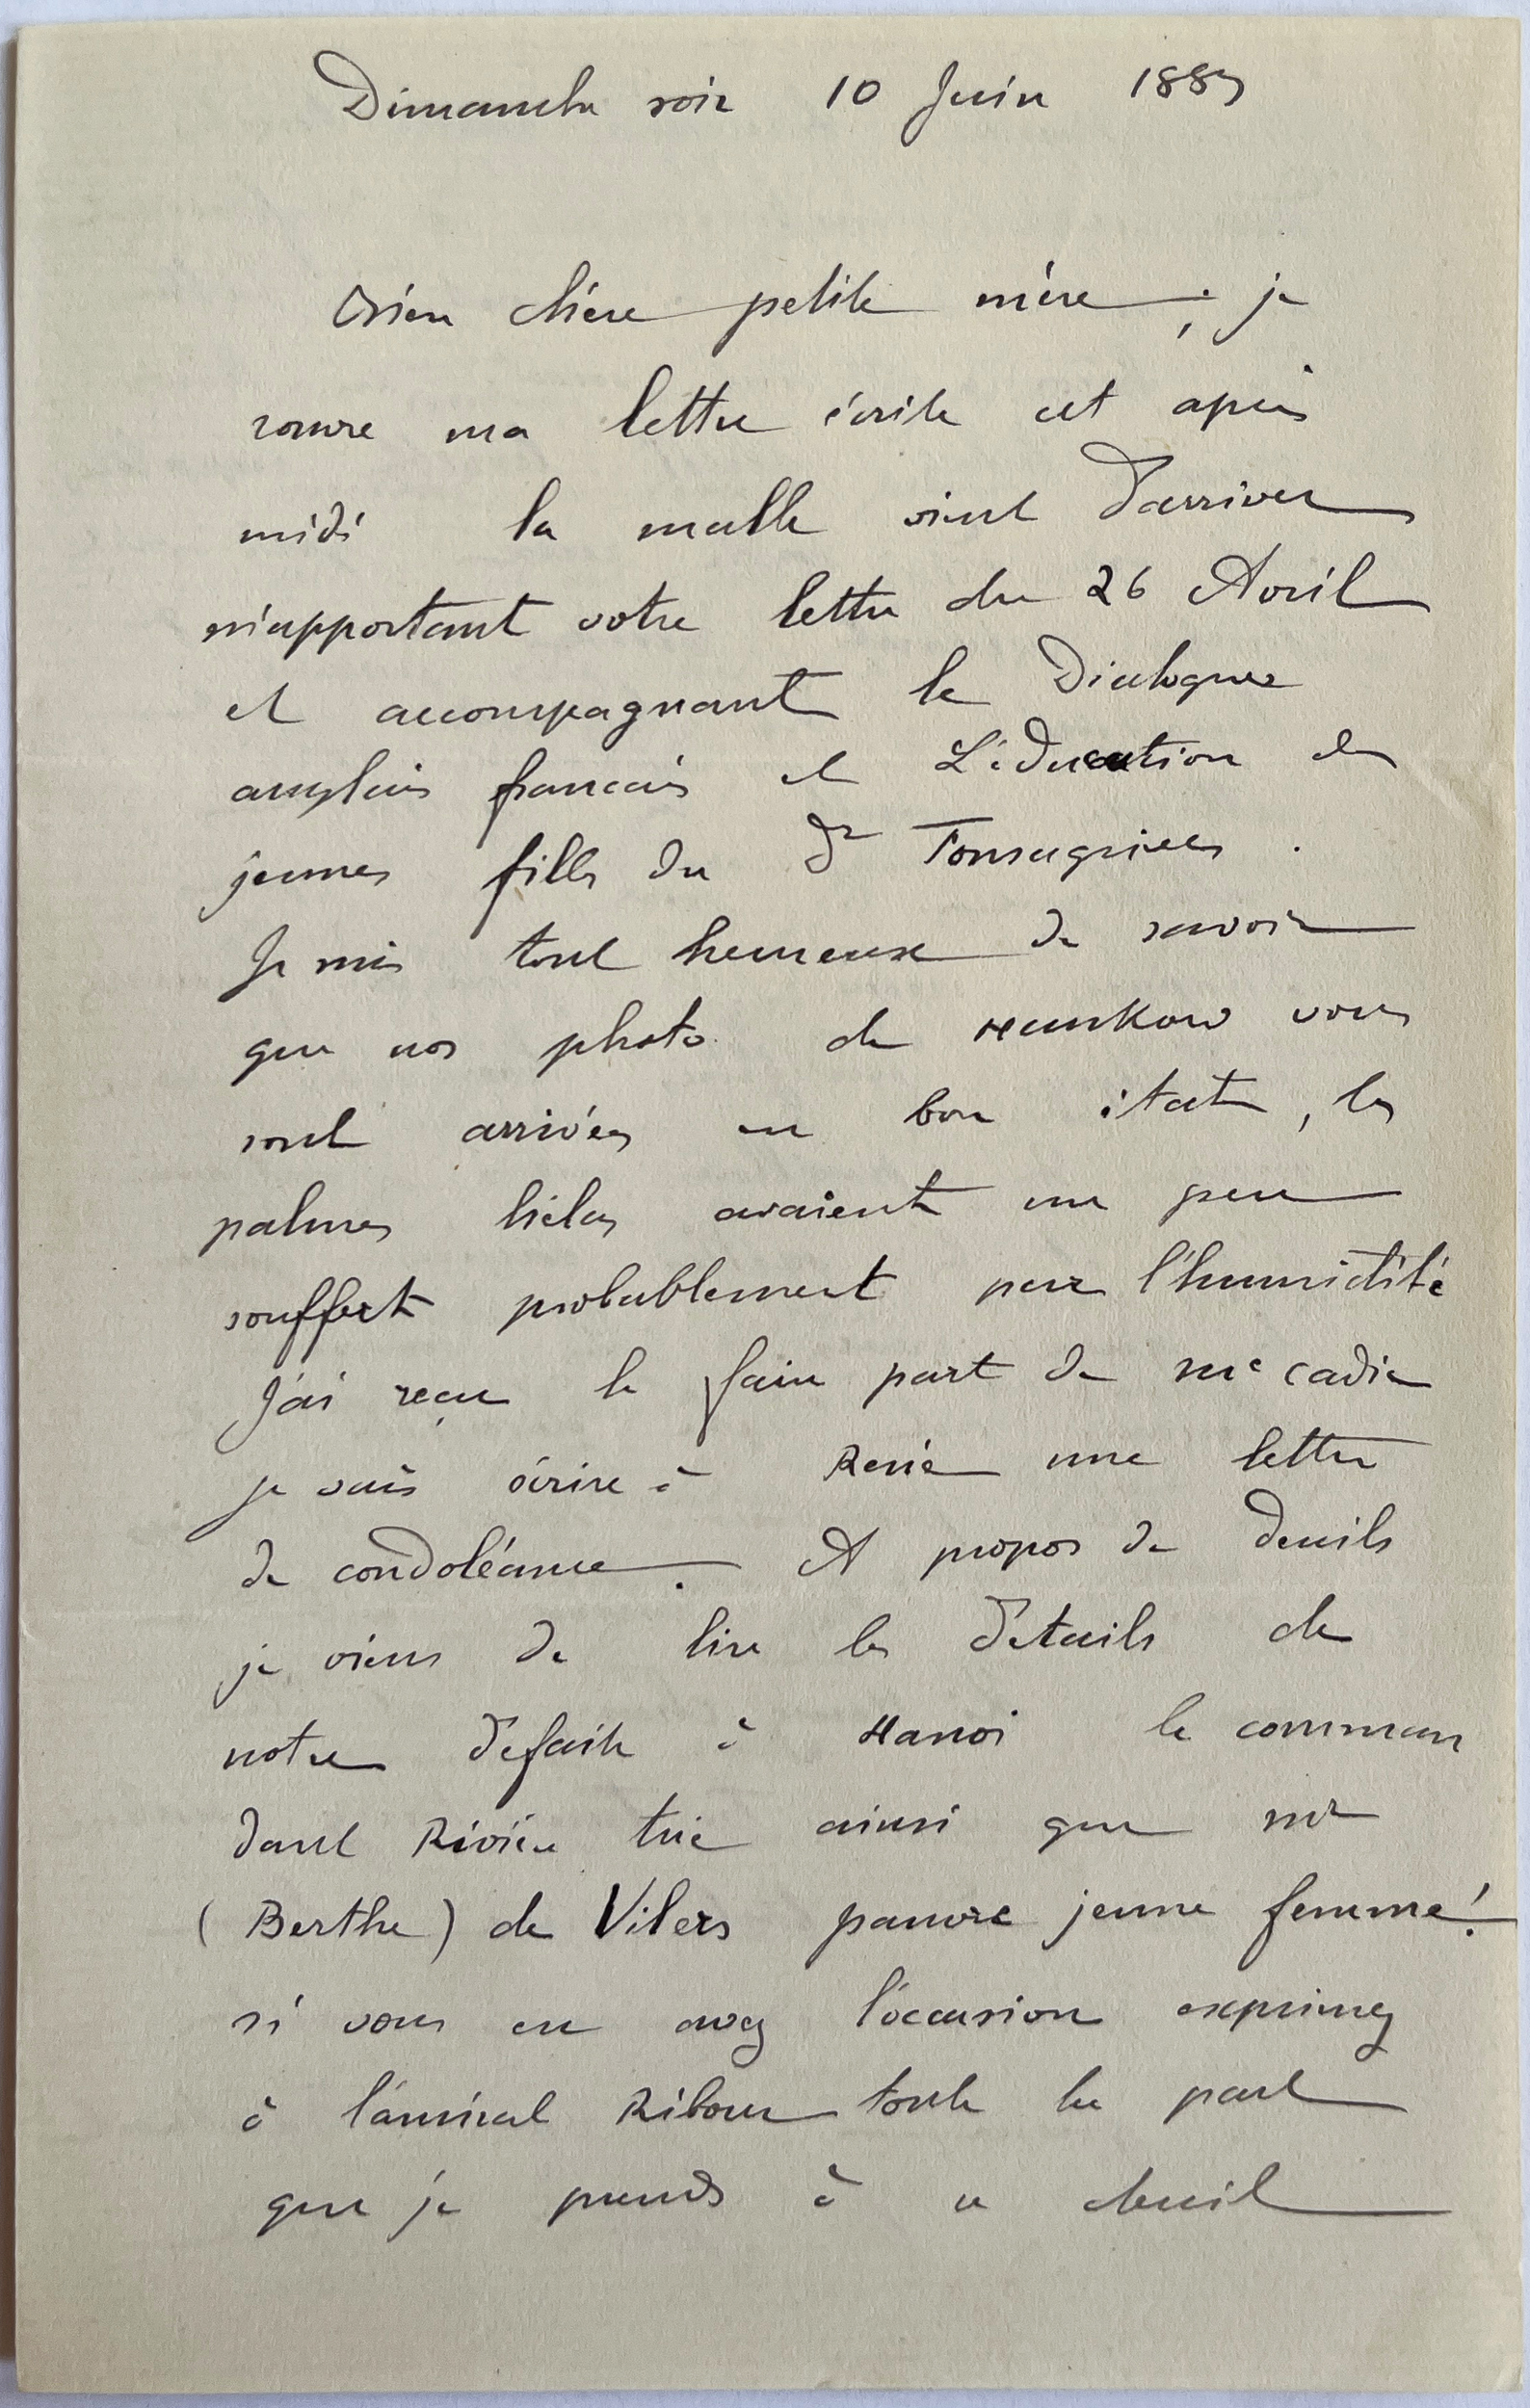 Dimanche soir 10 Juin 1883
Bien chère petite mère, je
rouvre ma lettre écrite cet après
midi la malle vient d'arriver
m'apportant votre lettre du 26 Avril
et accompagnant le Dialogue
anglais français et L'éducation des
jeunes filles du Dr Fonsagrives.
Je suis tout heureuse de savoir
que nos photo. de Hankow vous
sont arrivées en bon état, les
palmes hélas avaient un peu
souffert probablement par l'humidité
J'ai reçu le faire part de Me Cadie
je vais écrire à René une lettre
de condoléance. A propos de deuils
je viens de lire les détails de
notre défaite à Hanoi le comman
dant Rivière tué ainsi que Mr
(Berthe) de Vilers pauvre jeune femme!
si vous en avez l'occasion exprimez
à l'amiral Ribour toute la part
que je prends à ce deuil